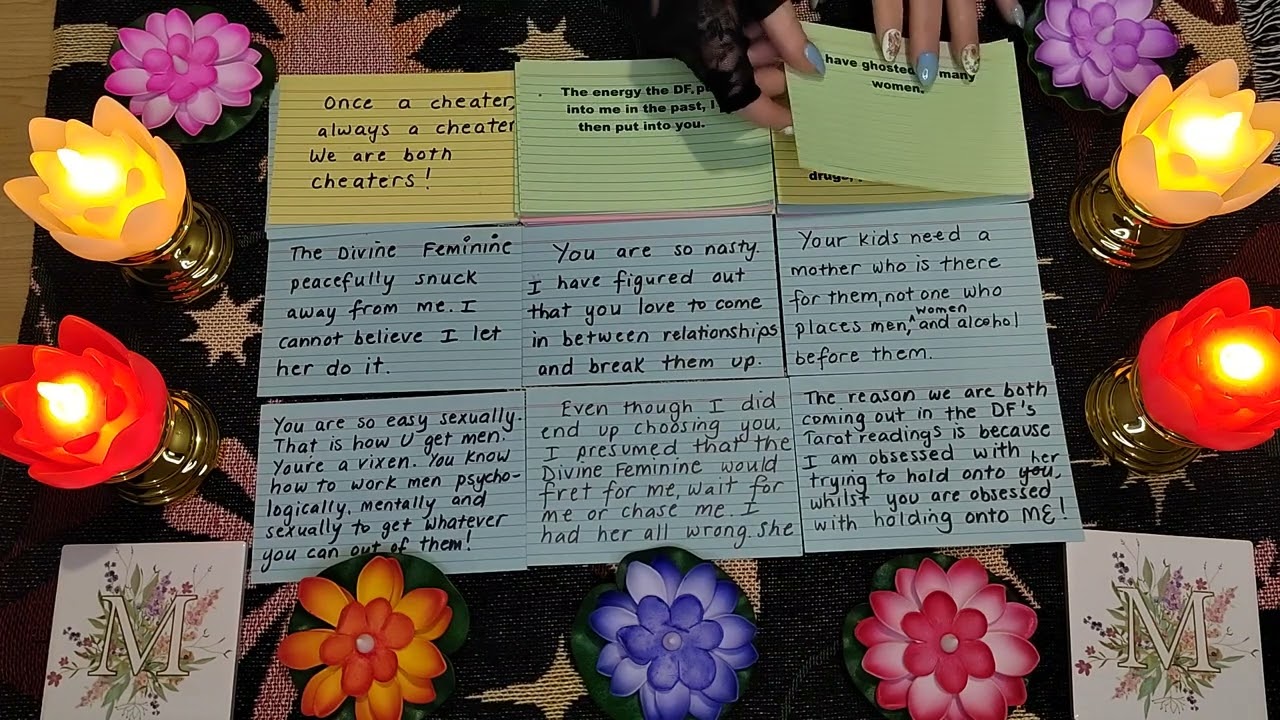 Once a cheater,
always a cheater
We are both
cheaters!
The energy the DF,
into me in the past, I
then put into you.
have ghosted many
women.
drugs,
The Divine Feminine
peacefully snuck
away from me. I
cannot believe I let
her do it.
You are so nasty.
I have figured out
that you love to come
in between relationships
and break them up.
Your kids need a
mother who is there
for them, not one who
places men, women and alcohol
before them.
You are so easy sexually.
That is how U get men.
You're a vixen. You know
how to work men psycho-
logically, mentally and
sexually to get whatever
you can out of them!
Even though I did
end up choosing you,
I presumed that the
Divine Feminine would
fret for me, wait for
me or chase me. I
had her all wrong. She
The reason we are both
coming out in the DF's
Tarot readings is because
I am obsessed with her
trying to hold onto you,
whilst you are obsessed
with holding onto ME!
M
M